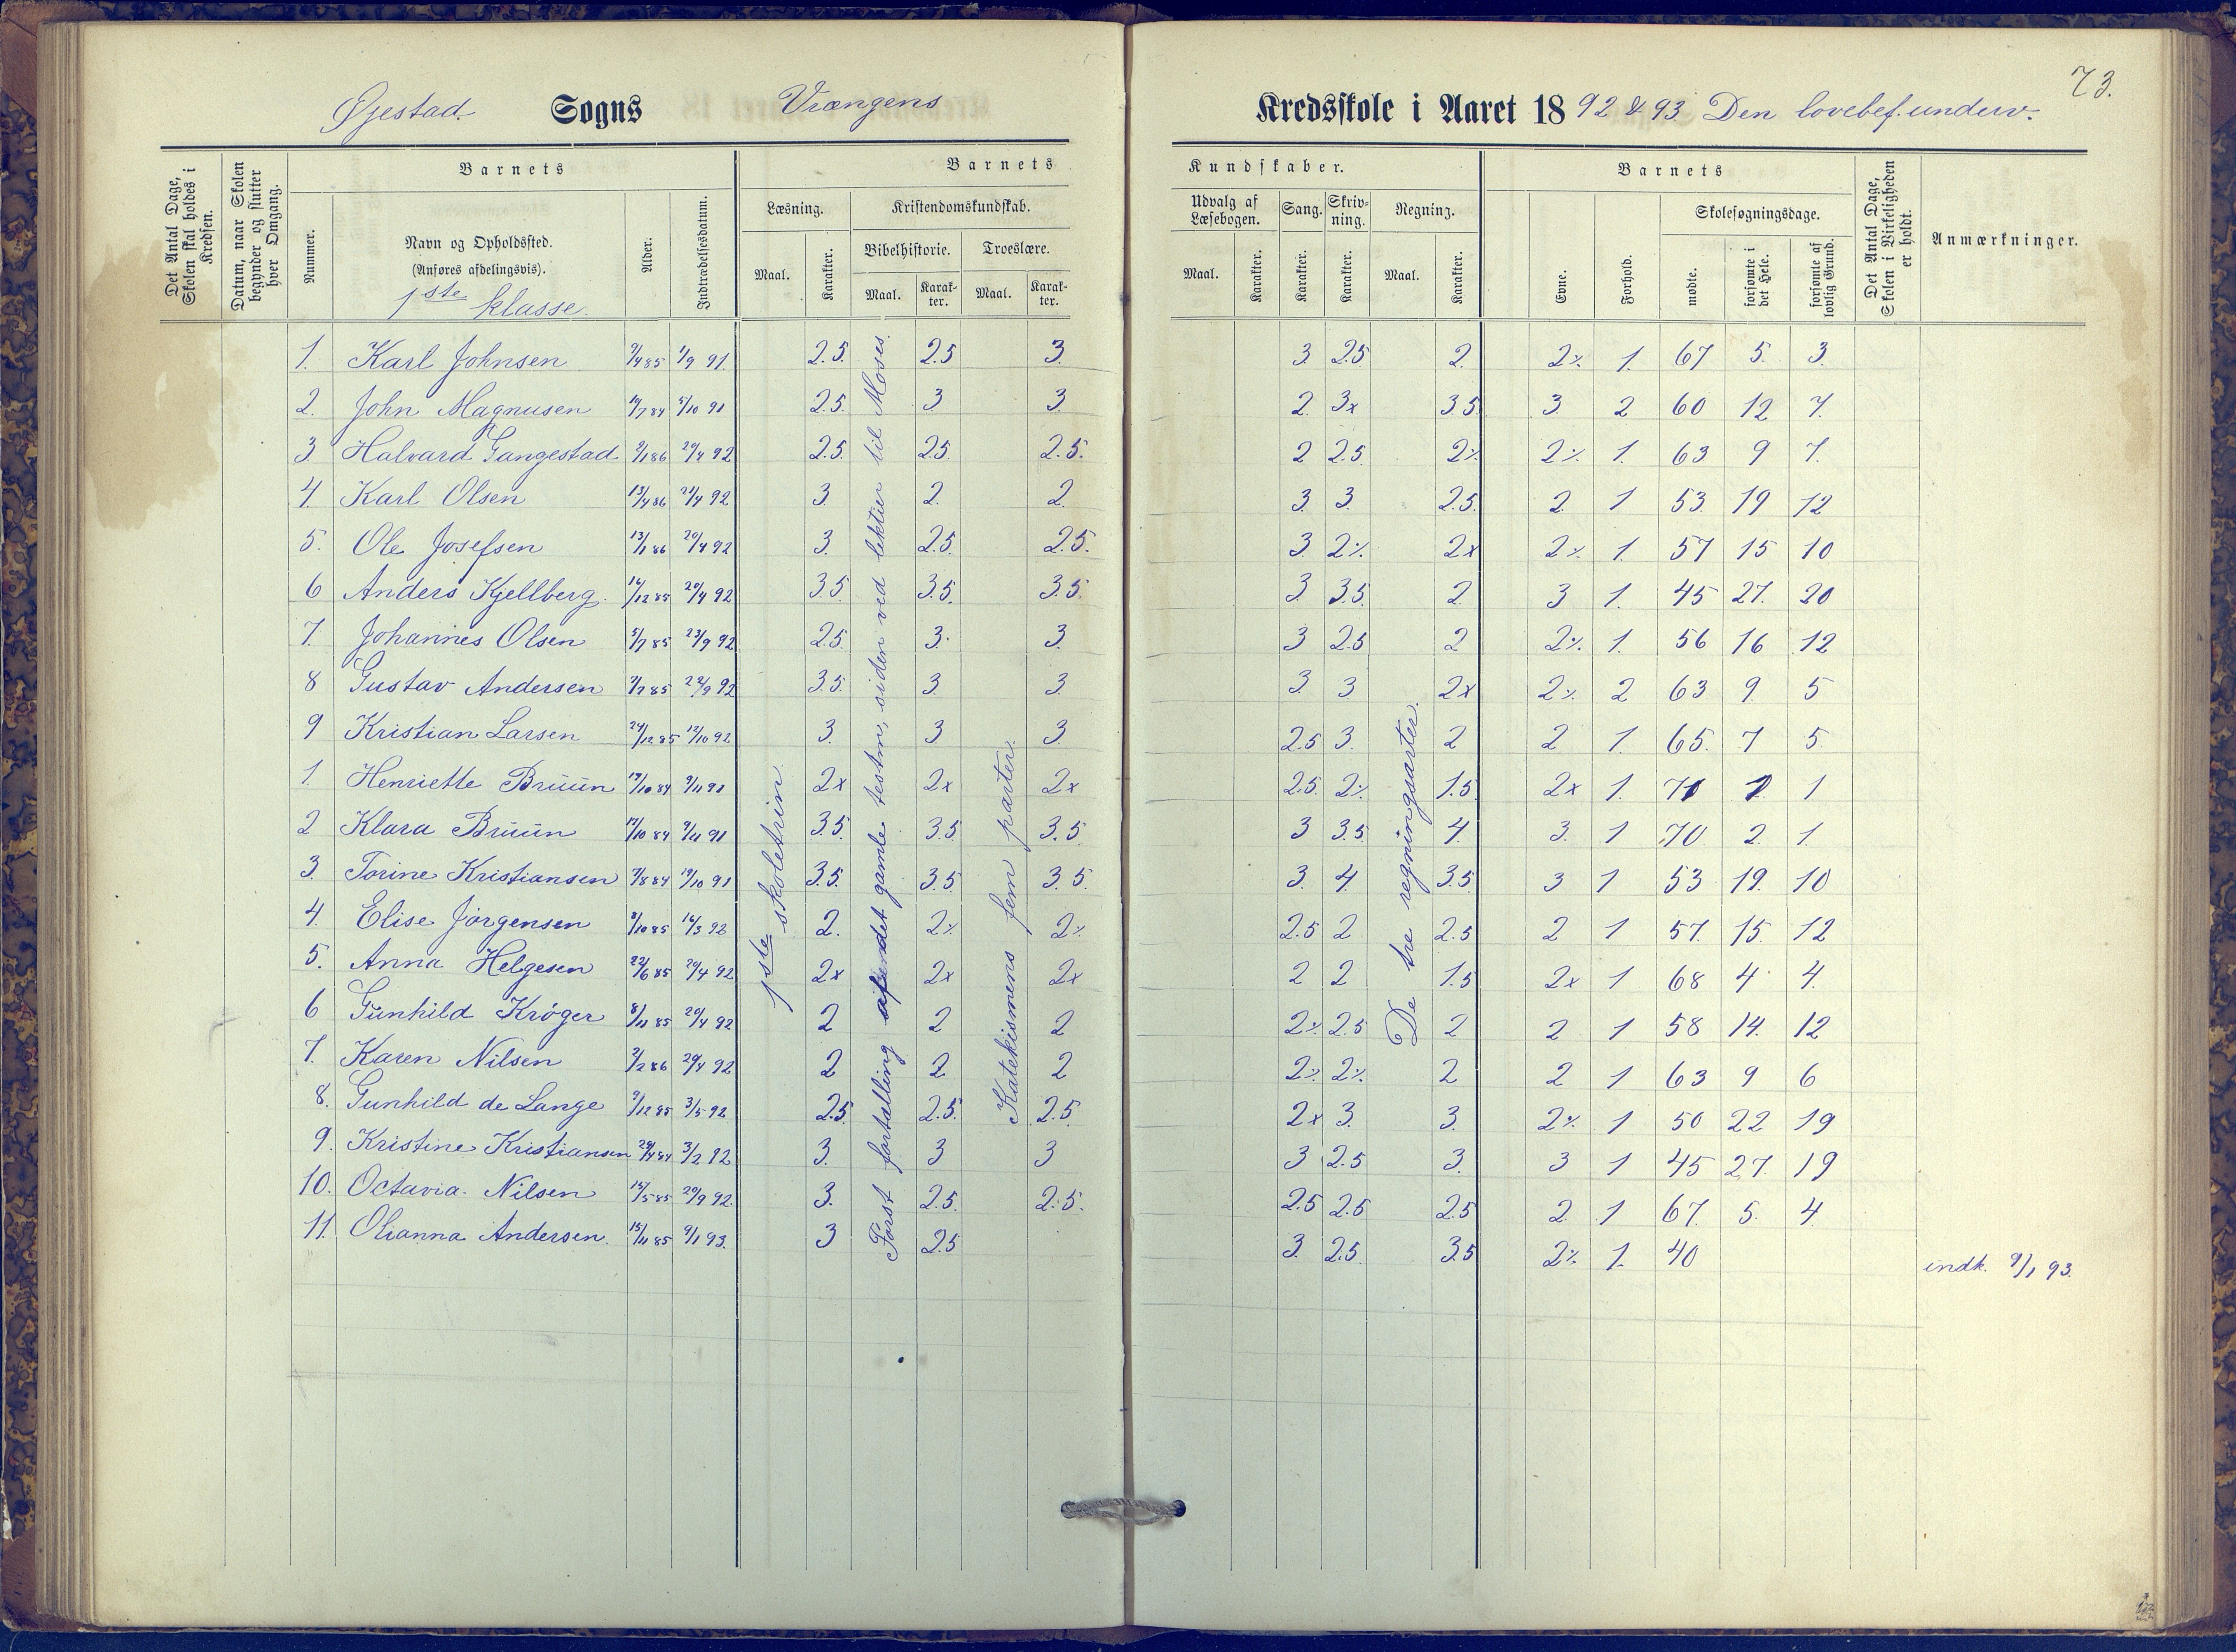 73.
Øjestad. Sogns Vrængens Kredsskole i Aaret 1892 & 93 Den lovebef. underv.
Det Antal Dage, Skolen skal holdes i Kredsen.
Datum, naar Skolen begynder og slutter hver Omgang.
Barnets
Nummer.
Navn og Opholdssted.
(Anføres afdelingsvis).
1ste klasse.
Alder.
Indtrædelsesdatum.
Barnets Kundskaber.
Læsning.
Maal. Karakter.
Kristendomskundskab.
Bibelhistorie. Troeslære.
Maal. Karakter. Maal. Karakter.
Udvalg af Læsebogen.
Maal. Karakter.
Sang. Karakter.
Skrivning. Karakter.
Regning.
Maal. Karakter.
Barnets
Evne. Forhold.
Skolesøgningsdage.
mødte. forsømte i det Hele. forsømte af lovlig Grund.
Det Antal Dage, Skolen i Virkeligheden er holdt.
Anmærkninger.
1ste skoletrin.
Først fortælling af det gamle testm, siden ved lektier til Moses.
Katekismens fem parter.
De tre regningsarter.
1. Karl Johnsen 1/9 91. 2.5. 2.5 3. 3. 2.5 2. 2% 1. 67 5. 3.
2. John Magnusen 2.5. 3 3. 2. 3x 3.5 3. 2 60 12 7.
3 Halvard Gangestad 20/4 92 2.5 2.5 2.5. 2 2.5 2% 2% 1. 63 9 7.
4. Karl Olsen 13/4 86 21/4 92 3. 2. 2. 3. 3. 2.5. 2 1 53 19 12
5. Ole Josefsen 13/1 86 20/4 92 3. 2.5. 2.5. 3 2% 2x 2% 1. 57 15 10
6 Anders Kjellberg. 16/12 85 20/4 92 3.5 3.5. 3.5. 3. 3.5. 2. 3 1. 45 27. 20
7. Johannes Olsen 5/7 85 23/9 92 2.5. 3. 3. 3 2.5 2 2% 1. 56 16 12
8 Gustav Andersen 22/9 92 3.5. 3. 3. 3. 3 2x 2% 2 63 9. 5
9 Kristian Larsen 24/12 85 12/10 92 3. 3 3. 2.5 3. 2 2 1 65. 7 5.
1. Henriette Brüün 9/11 91 2x 2x 2x 2.5. 2% 1.5 2x 1. 71 1
2 Klara Brüün 9/11 91 3.5. 3.5 3.5 3 3.5 4. 3. 1 70 2. 1.
3. Torine Kristiansen 19/10 91 3.5. 3.5 3.5. 3. 4. 3.5. 3 1 53 19. 10
4. Elise Jörgensen 16/3 92 2. 2% 2% 2.5 2 2.5 2 1 57. 15. 12
5. Anna Helgesen 22/6 85 20/4 92 2x 2x 2x 2 2 1.5 2x 1 68 4 4.
6 Günhild Kröger 8/11 85 20/4 92 2 2 2 2% 2.5 2 2 1 58 14. 12
7. Karen Nilsen 20/4 92 2 2 2 2% 2% 2 2 1 63 9 6
8. Gunhild de Lange 3/5 92 2.5 2.5. 2.5. 2x 3. 3. 2% 1 50 22 19
9. Kristine Kristiansen 3/2 92 3. 3 3 3 2.5 3. 3 1 45 27. 19
10. Octavia. Nilsen 15/5 85 20/9 92. 3. 2.5. 2.5. 2.5 2.5 2.5 2. 1 67. 5. 4.
11. Olianna Andersen. 15/11 85 9/1 93. 3 2.5 3. 2.5. 3.5 2% 1. 40 indk. 9/1 93.